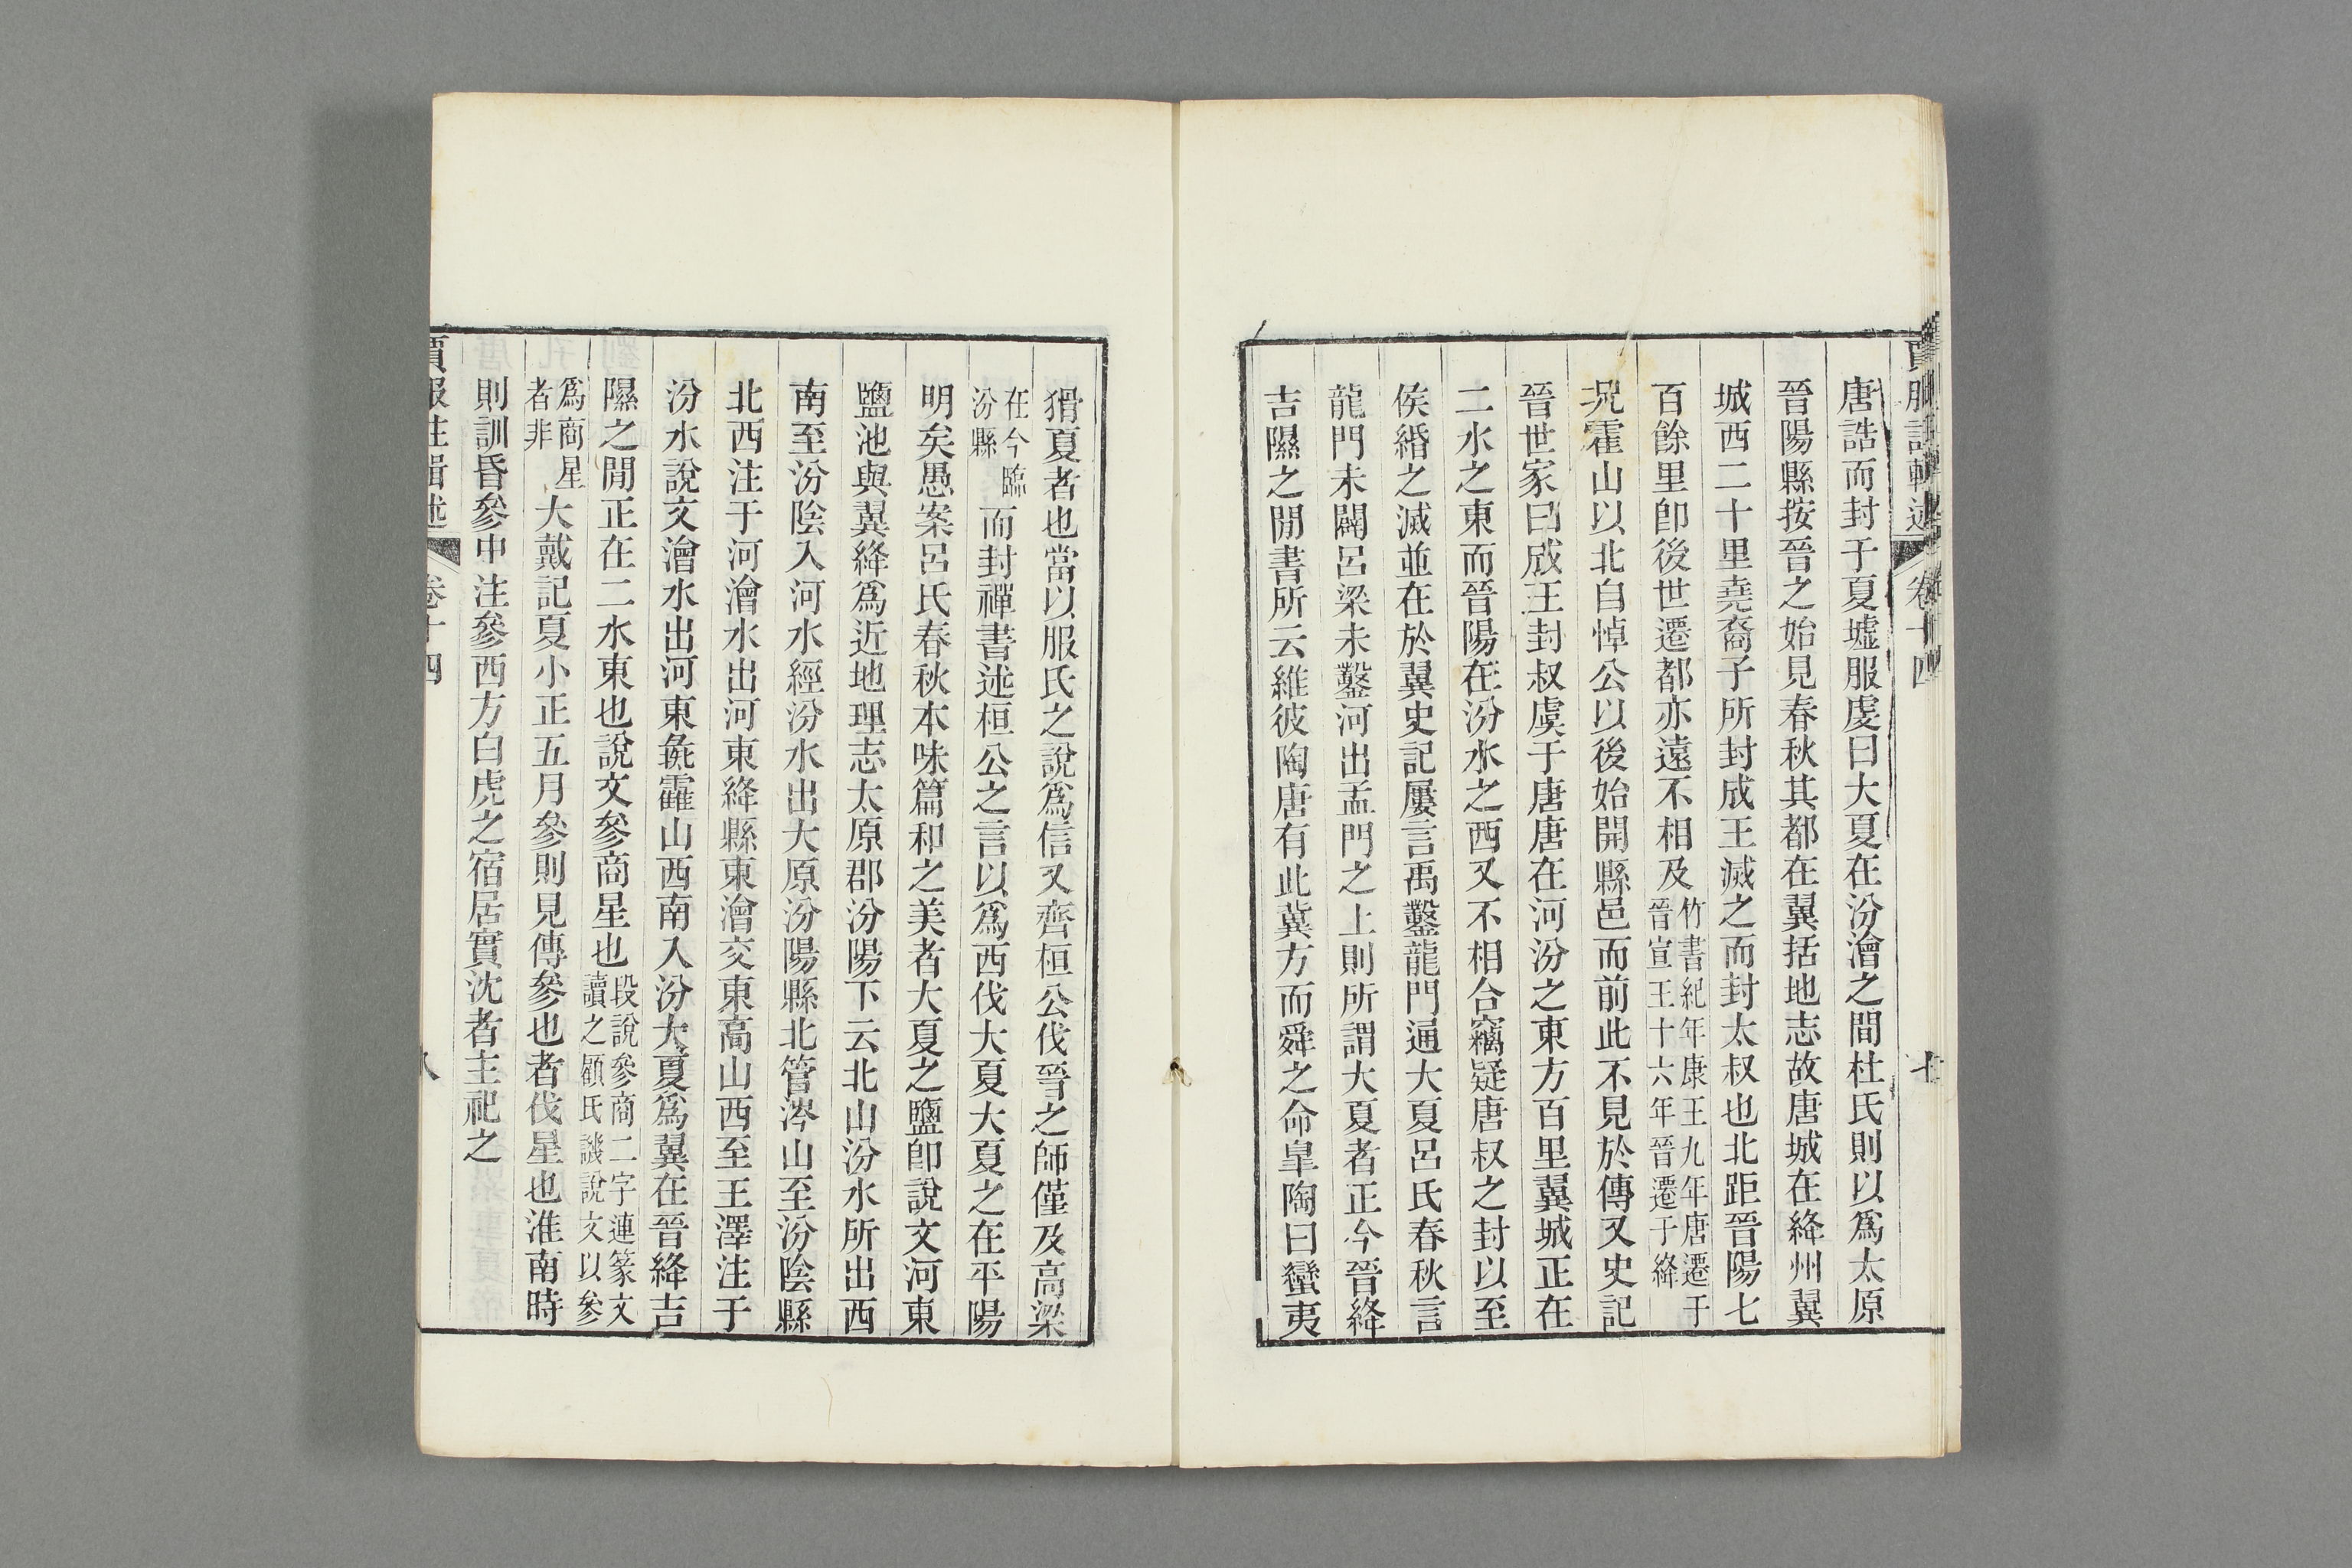 賈服注輯述 卷十四 七
唐誥而封于夏墟服虔曰大夏在汾澮之間杜氏則以爲太原
晉陽縣按晉之始見春秋其都在翼括地志故唐城在絳州翼
城西二十里堯裔子所封成王滅之而封太叔也北距晉陽七
百餘里卽後世遷都亦遠不相及竹書紀年康王九年唐遷于
晉宣王十六年晉遷于絳
況霍山以北自悼公以後始開縣邑而前此不見於傳又史記
晉世家曰成王封叔虞于唐唐在河汾之東方百里翼城正在
二水之東而晉陽在汾水之西又不相合竊疑唐叔之封以至
侯緡之滅並在於翼史記屢言禹鑿龍門通大夏呂氏春秋言
龍門未闢呂梁未鑿河出孟門之上則所謂大夏者正今晉絳
吉隰之閒書所云維彼陶唐有此冀方而舜之命皐陶曰蠻夷
猾夏者也當以服氏之說爲信又齊桓公伐晉之師僅及高梁
在今臨
汾縣而封禪書述桓公之言以爲西伐大夏大夏之在平陽
明矣愚案呂氏春秋本味篇和之美者大夏之鹽卽說文河東
鹽池與翼絳爲近地理志太原郡汾陽下云北山汾水所出西
南至汾陰入河水經汾水出大原汾陽縣北管涔山至汾陰縣
北西注于河澮水出河東絳縣東澮交東高山西至王澤注于
汾水說文澮水出河東彘靃山西南入汾大夏爲翼在晉絳吉
隰之閒正在二水東也說文參商星也段說參商二字連篆文
讀之顧氏譏說文以參
爲商星
者非大戴記夏小正五月參則見傳參也者伐星也淮南時
則訓昏參中注參西方白虎之宿居實沈者主祀之
賈服注輯述 卷十四 八